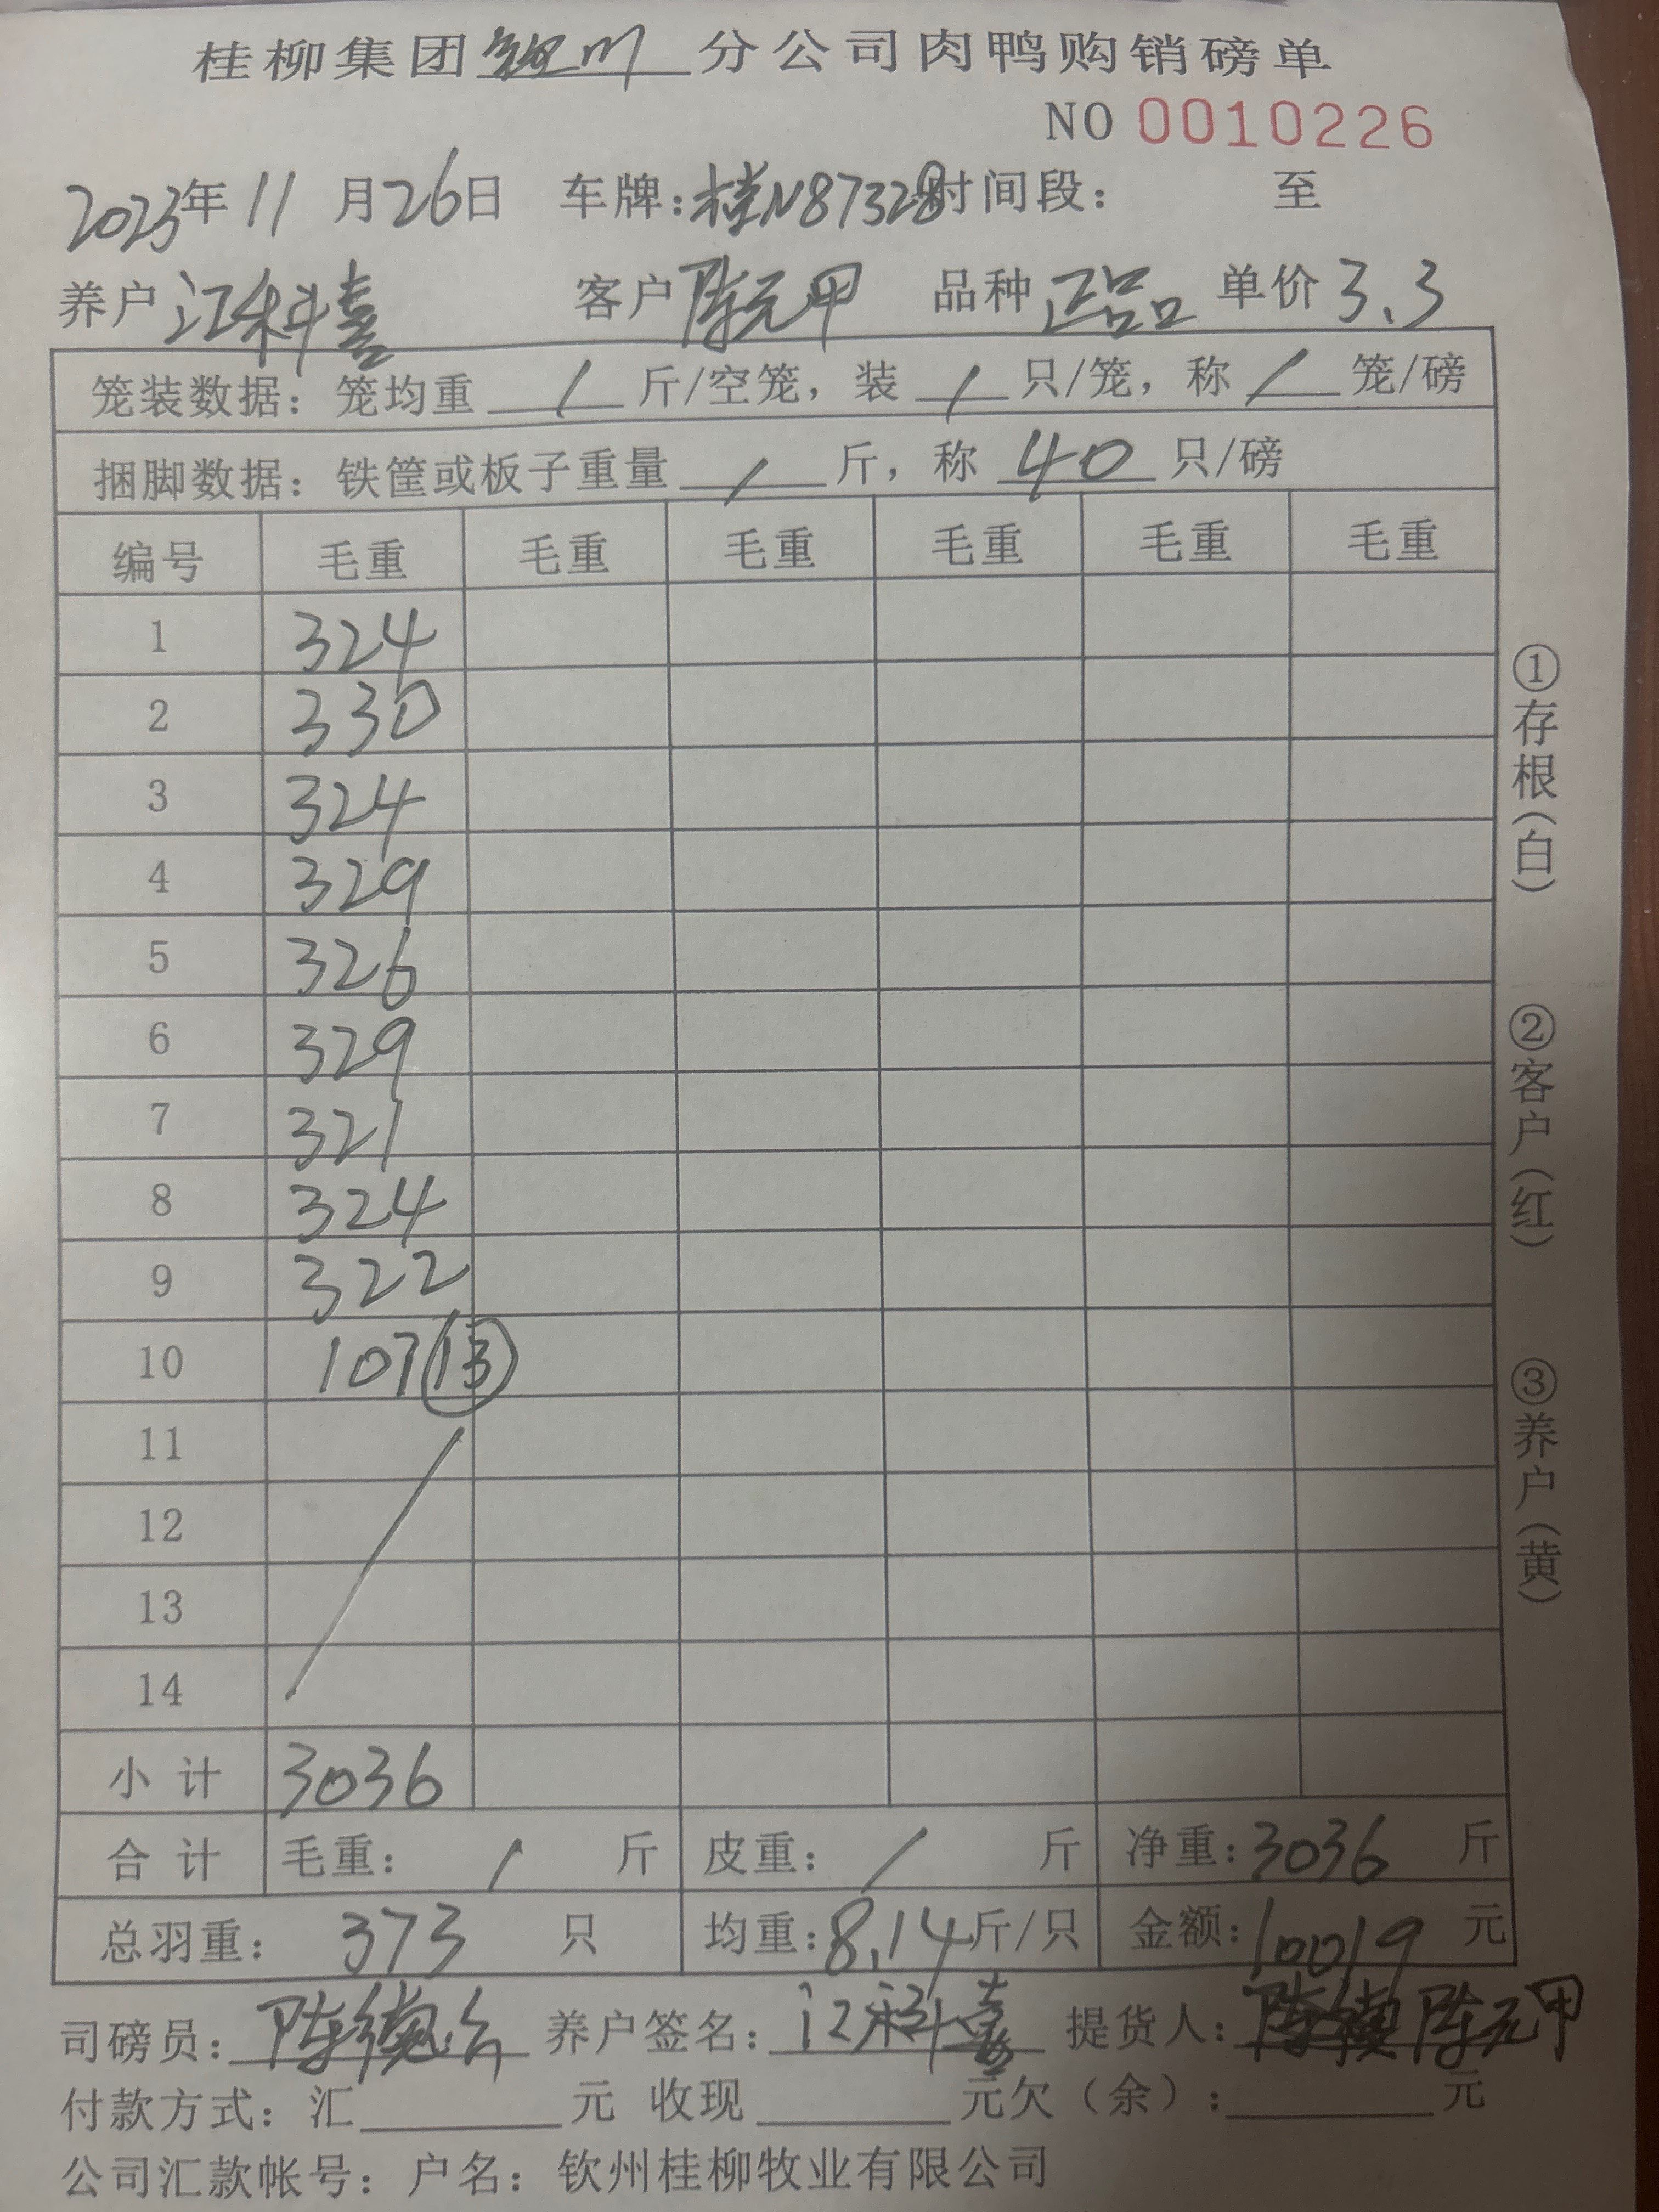 桂柳集团 分公司肉鸭购销磅单
NO 0010226
2023年11月26日 车牌:桂N87328时间段: 至
养户 江科喜 客户 陈元甲 品种 正品 单价 3.3
笼装数据: 笼均重 / 斤/空笼, 装 / 只/笼, 称 / 笼/磅
捆脚数据: 铁筐或板子重量 / 斤, 称 40 只/磅
编号 毛重 毛重 毛重 毛重 毛重 毛重
1 324
2 330
3 324
4 329
5 326
6 329
7 321
8 324
9 322
10 107 13
11
12
13
14
小计 3036
合计 毛重: / 斤 皮重: / 斤 净重: 3036 斤
总羽重: 373 只 均重: 8.14 斤/只 金额: 10019 元
司磅员: 陈德 养户签名: 江科喜 提货人: 陈元甲
付款方式: 汇 元 收现 元欠(余): 元
公司汇款帐号: 户名: 钦州桂柳牧业有限公司
①存根(白)
②客户(红)
③养户(黄)